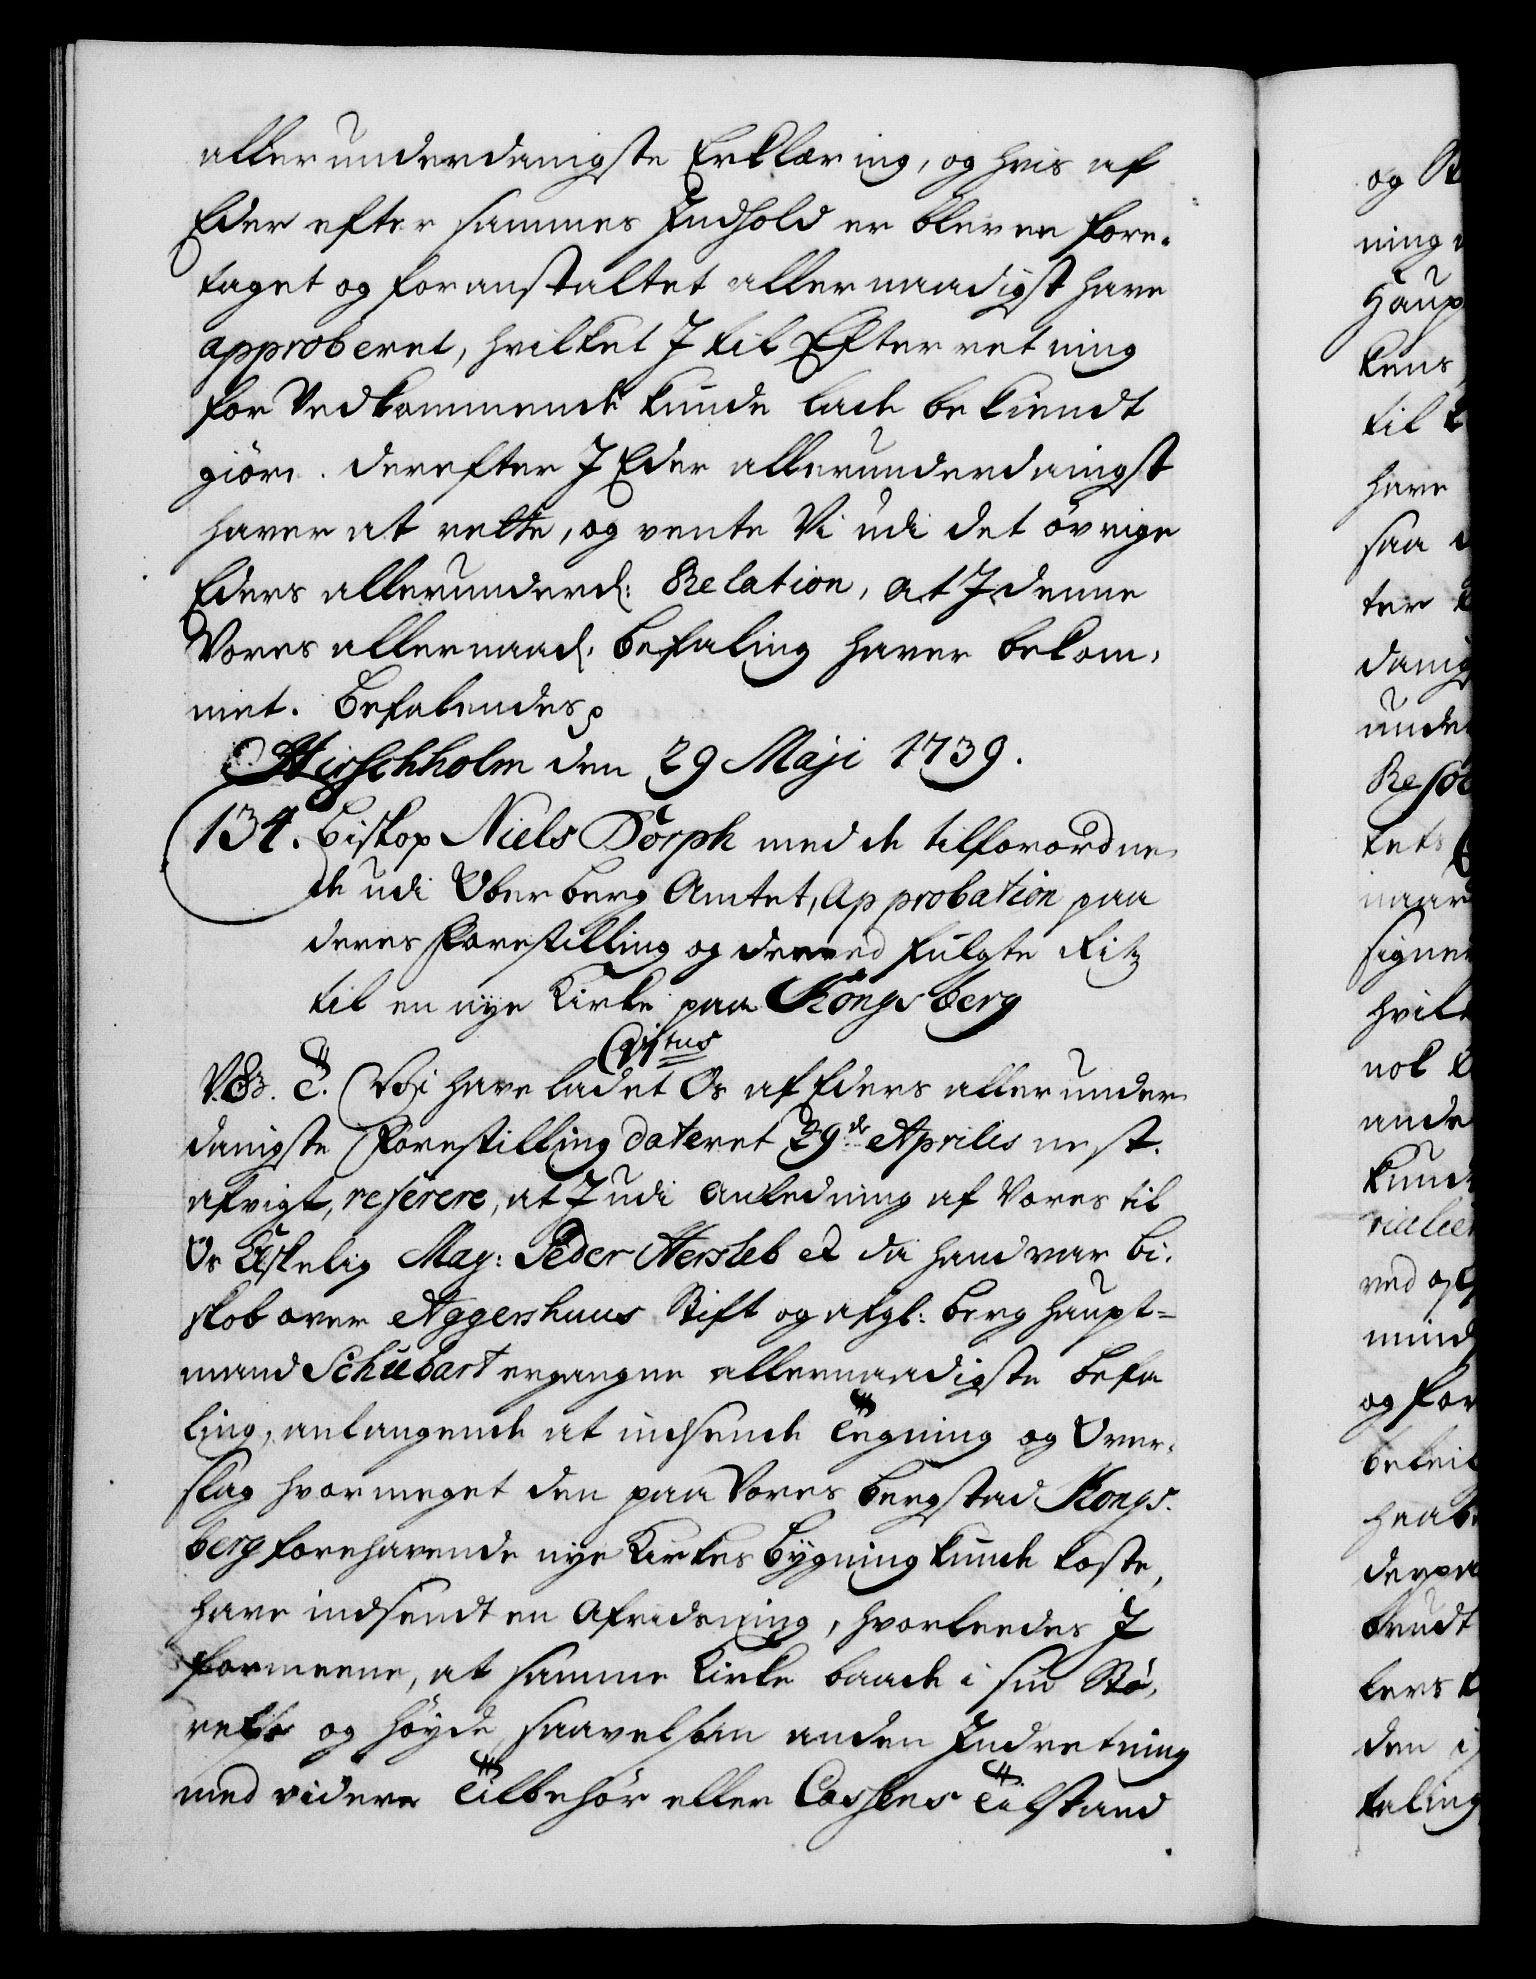 allerunderdanigste Erklæring, og hvis af
Eder efter sammes Indhold er bleven fore-
taget og foranstaltet allernaadigst have
approberet, hvilket I til Efterretning
for Vedkommende kunde lade bekiendt
giöre. derefter I Eder allerunderdanigst
haver at rette, og vente Vi udi det övrige
Eders allerunderd: Relation, at I denne
Vores allernaad: Befaling haver bekom-
met. Befalendes
Hirschholm den 29 Maji 1739.
134. Biskop Niels Dorph med de tilforordne-
de udi Ober berg Amtet, Approbation paa
deres Forestilling og derved fulgte Ritz
til en nye Kirke paa Kongsberg
C 7tus
V. G. T. Vi have ladet Os af Eders allerunder-
danigste Forestilling dateret 29de Aprilis nest-
afvigt, referere, at I udi Anledning af Vores til
Os Elskelig Mag: Peder Hersleb da hand var Bi-
skob over Aggershuus Stift og afgl: Berghaupt-
mand Schubart ergangne allernaadigste Befa
ling, anlangende at indsende Tegning og Over-
slag hvormeget den paa Vores Bergstad Kongs-
berg forehavende nye Kirkes Bygning kunde koste,
have indsendt en Afridsning, hvorleedes I
formeene, at samme Kirke baade i sin Stö-
relse og höyde saavelsom anden Indretning
med videre Tilbehör eller Cassens Tilstand
og
ning
Haup
kens,
til
have
saa
ter
danig
under
Resol
tets
naar
signe
hvilk
nok
ande
kund
ved op
mind
og for
beleil
haab
derpaa
brudt
lers
den i
taling